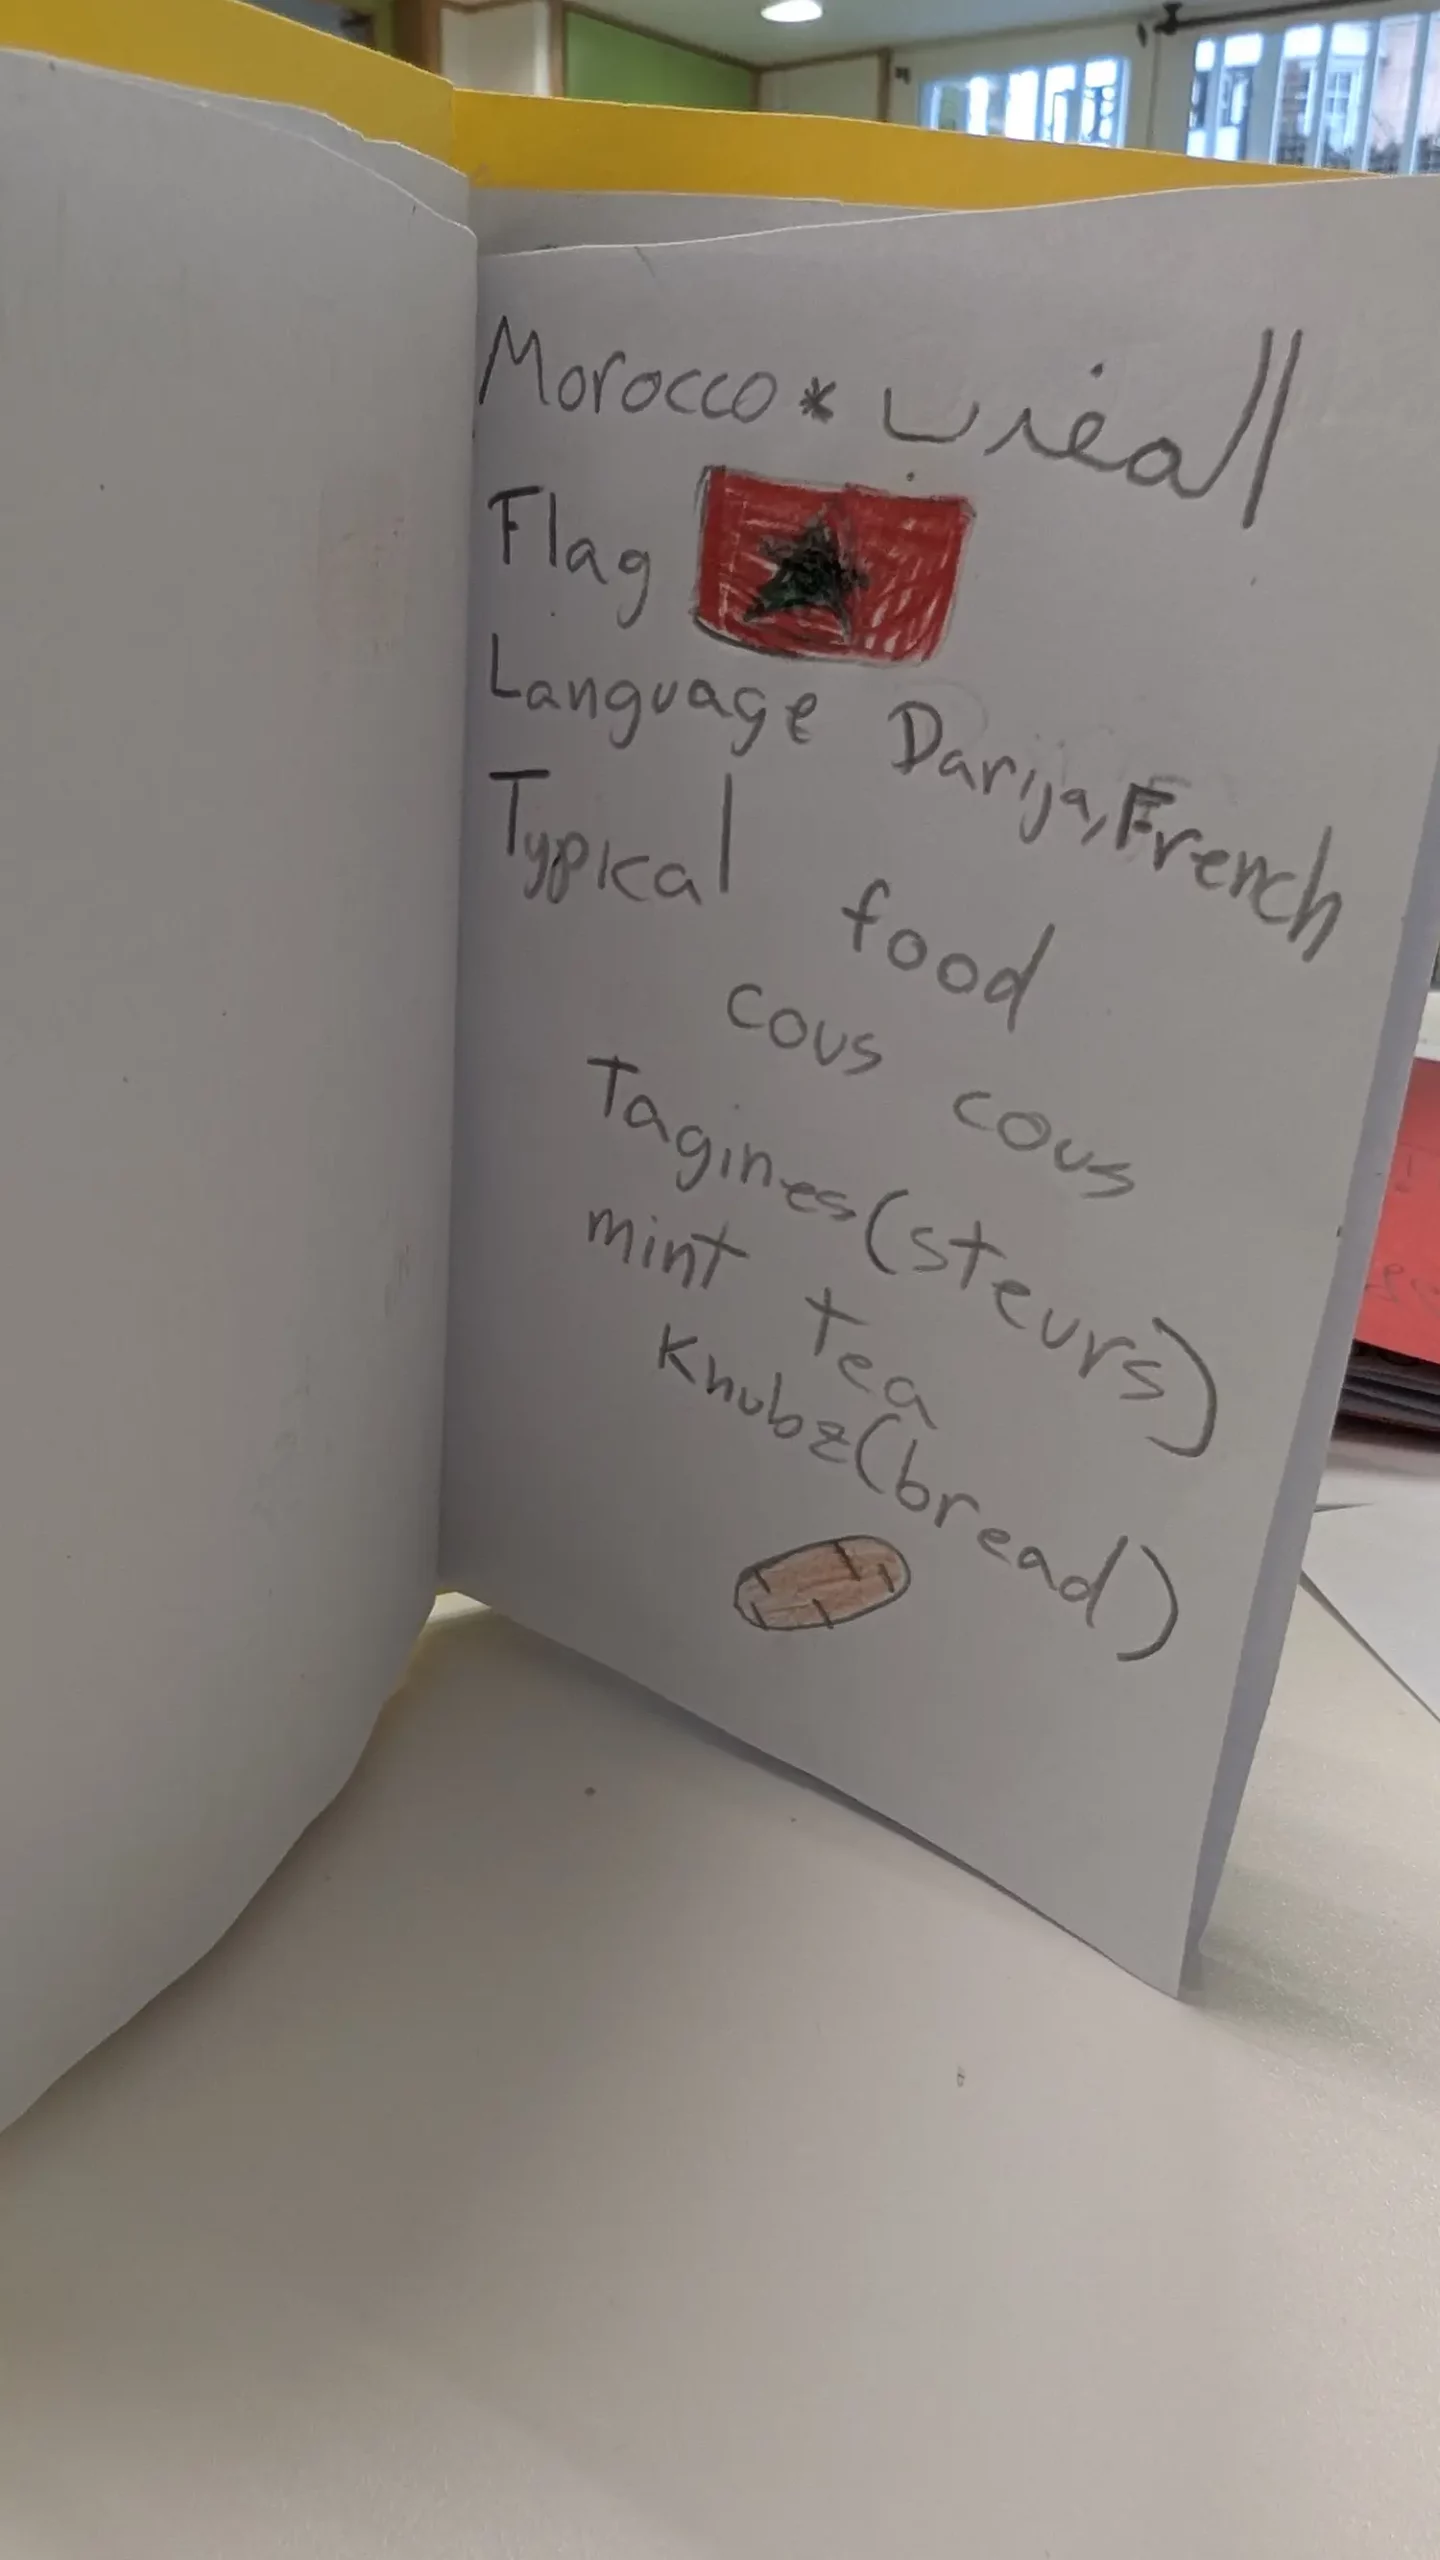 Morocco * المغرب
Flag
Language Darija, French
Typical food
cous cous
Tagines (steurs)
mint tea
Khubz (bread)